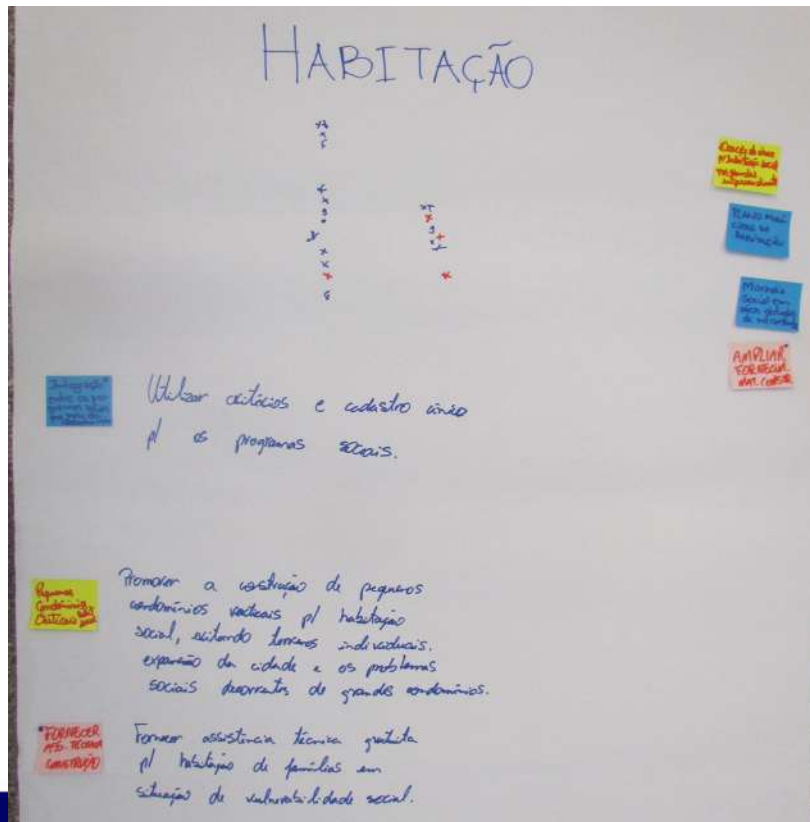 HABITAÇÃO
PLANO MUNI
CIPAL DE
HABITAÇÃO
Moradia
Social em
AMPLIAR
FORNECIM.
MAT. CONSTR
Integração
Utilizar critérios e cadastro único
p/ os programas sociais.
Pequenos
Condomínios
Verticais
Promover a construção de pequenos
condomínios verticais p/ habitação
social, evitando terrenos individuais.
expansão da cidade e os problemas
sociais decorrentes de grandes condomínios.
FORNECER
ASS. TÉCNICA
CONSTRUÇÃO
Fornecer assistência técnica gratuita
p/ habitação de famílias em
situação de vulnerabilidade social.